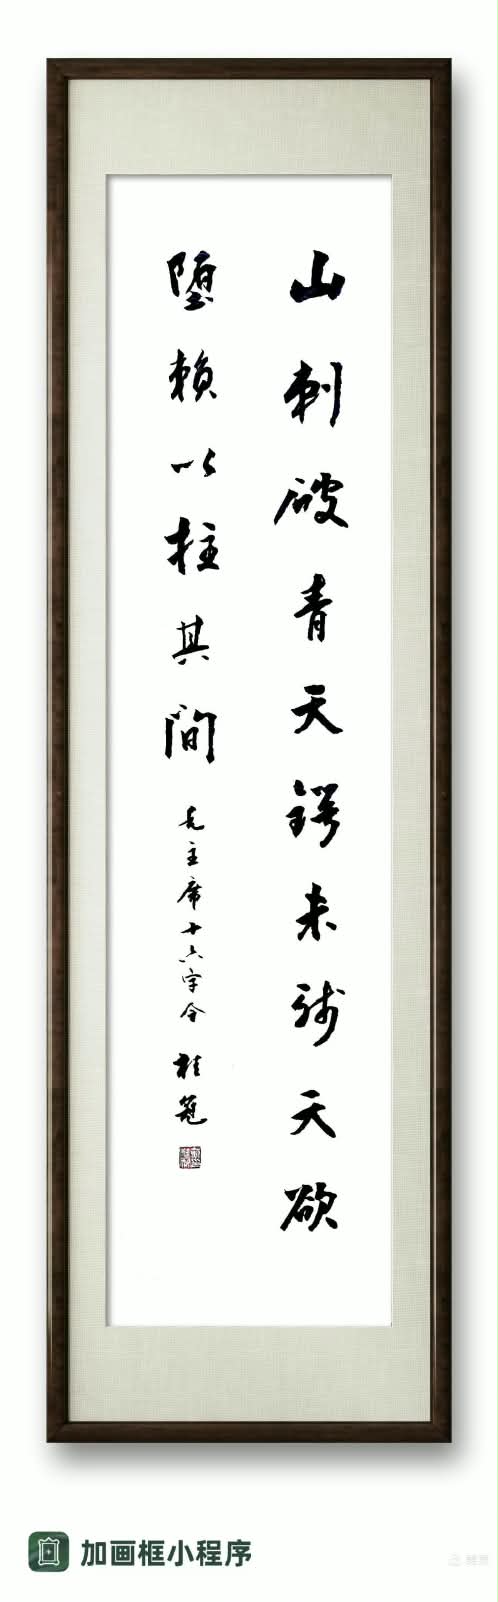 山刺破青天锷未残天欲
堕赖以柱其间
毛主席十六字令 桂
加画框小程序